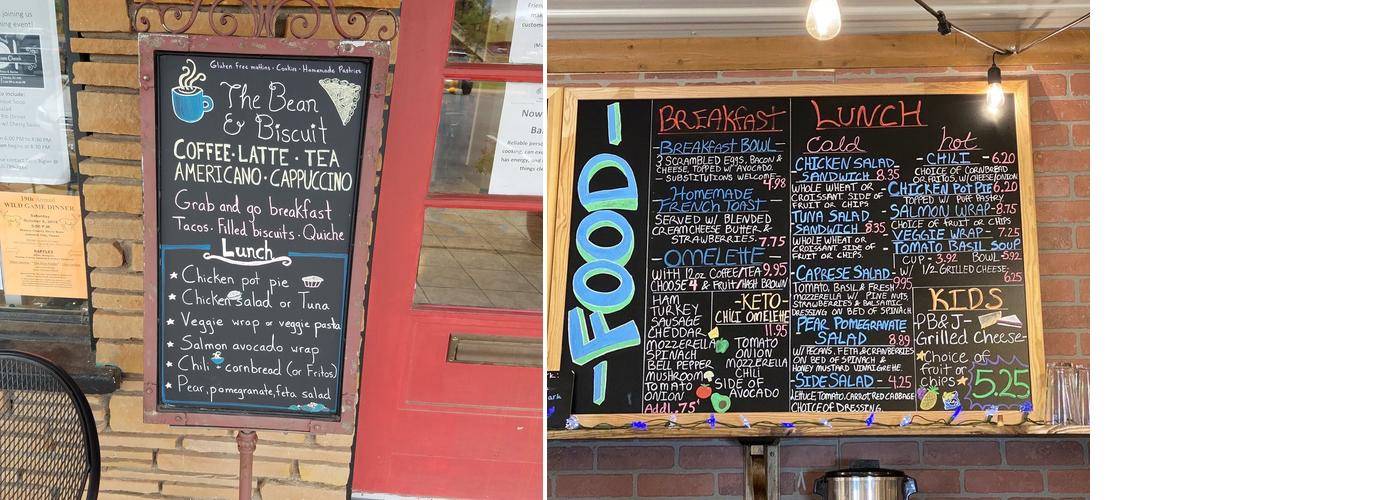 Gluten free muffins · Cookies · Homemade Pastries
The Bean
& Biscuit
COFFEE · LATTE · TEA
AMERICANO · CAPPUCCINO
Grab and go breakfast
Tacos · Filled biscuits · Quiche
Lunch
Chicken pot pie
Chicken salad or Tuna
Veggie wrap or veggie pasta
Salmon avocado wrap
Chili cornbread (or Fritos)
Pear, pomegranate, feta salad
joining us
19th Annual
WILD GAME DINNER
Saturday
Now
-FOOD-
BREAKFAST
-BREAKFAST BOWL-
3 SCRAMBLED EGGS, BACON &
CHEESE, TOPPED W/ AVOCADO.
- SUBSTITUTIONS WELCOME-
4.98
HOMEMADE
FRENCH TOAST
SERVED W/ BLENDED
CREAMCHEESE BUTTER &
STRAWBERRIES. 7.75
-OMELETTE-
WITH 12oz COFFEE/TEA 9.95
CHOOSE 4 & FRUIT/HASH BROWN
HAM
TURKEY
SAUSAGE
CHEDDAR
MOZZERELLA
SPINACH
BELL PEPPER
MUSHROOM
TOMATO
ONION
Addl .75
-KETO-
CHILI OMELETTE
11.95
TOMATO
ONION
MOZZERELLA
CHILI
SIDE OF
AVOCADO
LUNCH
Cold
CHICKEN SALAD
SANDWICH 8.35
WHOLE WHEAT OR
CROISSANT SIDE OF
FRUIT OR CHIPS
TUNA SALAD
SANDWICH 8.35
WHOLE WHEAT OR
CROISSANT SIDE OF
FRUIT OR CHIPS.
-CAPRESE SALAD-
9.95
TOMATO, BASIL & FRESH
MOZZERELLA W/ PINE NUTS,
STRAWBERRIES & BALSAMIC
DRESSING ON BED OF SPINACH
PEAR POMEGRANATE
SALAD 8.89
W/ PECANS, FETA & CRANBERRIES
ON BED OF SPINACH &
HONEY MUSTARD VINNAIGRETTE.
-SIDE SALAD - 4.25
LETTUCE, TOMATO, CARROT, RED CABBAGE
CHOICE OF DRESSING.
hot
-CHILI -6.20
CHOICE OF CORNBREAD
OR FRITOS, W/ CHEESE/ONION
CHICKEN POT PIE 6.20
TOPPED W/ PUFF PASTRY
-SALMON WRAP-8.75
CHOICE OF FRUIT OR CHIPS
-VEGGIE WRAP - 7.25
-TOMATO BASIL SOUP
CUP - 3.92 BOWL -5.92
W/ 1/2 GRILLED CHEESE,
6.25
KIDS
-PB&J-
Grilled Cheese-
Choice of
fruit or
chips
5.25